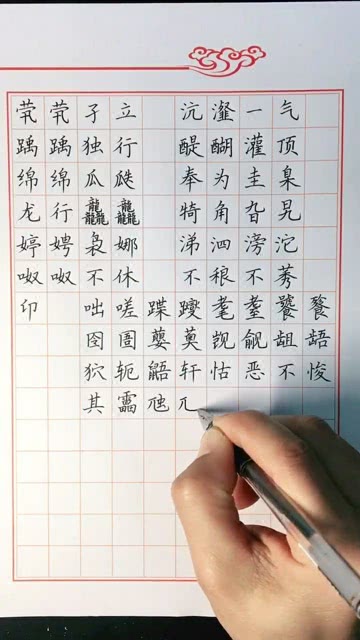 茕茕孑立 沆瀣一气
踽踽独行 醍醐灌顶
绵绵瓜瓞 奉为圭臬
龙行龘龘 犄角旮旯
婷娉袅娜 涕泗滂沱
呶呶不休 不稂不莠
卬 咄嗟蹀躞耄耋饕餮
囹圄蘡薁觊觎龃龉
狖轭鼯轩怙恶不悛
其靁虺兀